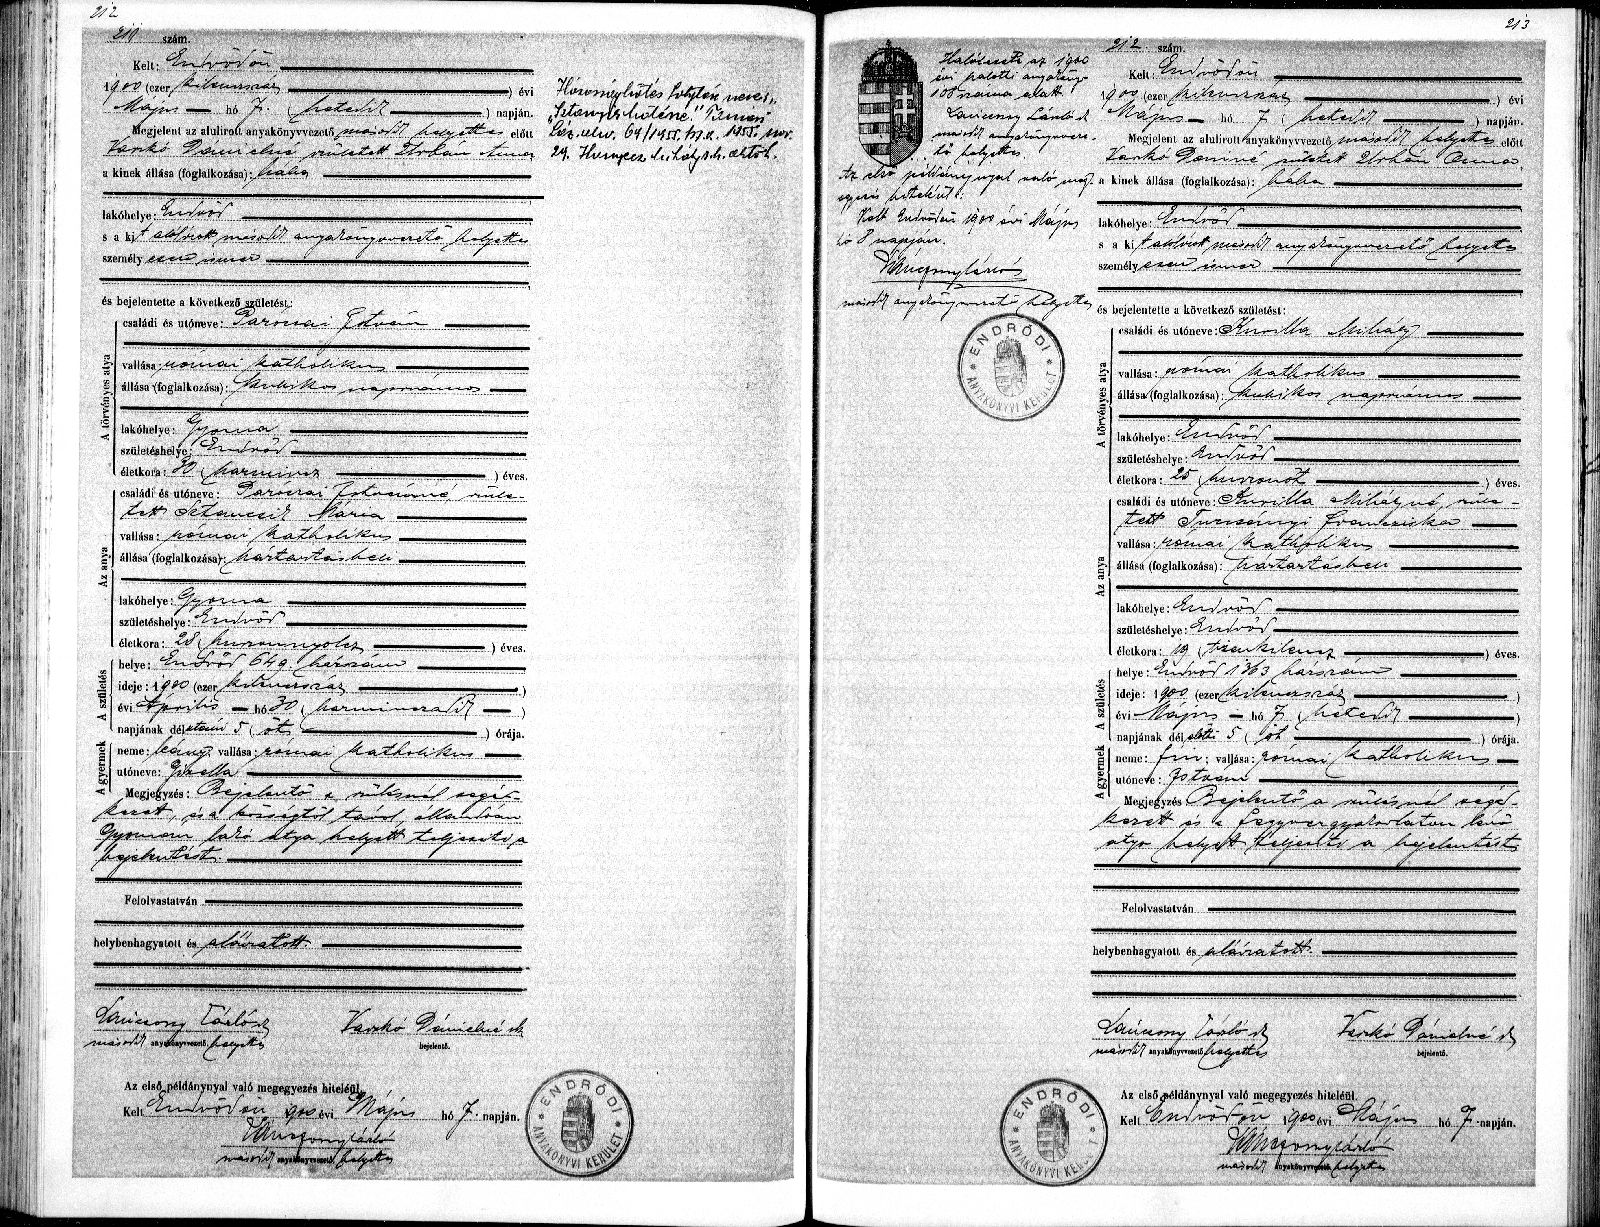 212
211 szám.
Kelt: Endrődön
1900 (ezer kilenczszáz) évi
Május hó 7. (hetedik) napján.
Megjelent az alulirott anyakönyvvezető második helyettes előtt
Varkó Dánielné született Urbán Anna
a kinek állása (foglalkozása): bába
lakóhelye: Endrőd
s a kit alólirott második anyakönyvvezető helyettes
személyesen ismer
és bejelentette a következő születést:
A törvényes atya
családi és utóneve: Paróczai István
vallása: római katholikus
állása (foglalkozása): kubikos napszámos
lakóhelye: Gyoma
születéshelye: Endrőd
életkora: 30 (harmincz) éves.
Az anya
családi és utóneve: Paróczai Istvánné szüle-
tett Mária
vallása: római katholikus
állása (foglalkozása): háztartásbeli
lakóhelye: Gyoma
születéshelye: Endrőd
életkora: 28 (huszonnyolcz) éves.
A születés
helye: Endrőd 649. házszám
ideje: 1900 (ezer kilenczszáz)
évi Április hó 30 (harminczadik)
napjának délutáni 5 (öt) órája.
A gyermek
neme: leány; vallása: római katholikus
utóneve: Gizella
Megjegyzés: Bejelentő a szülésnél segéd-
kezett, és a községtől távol, állandóan
Gyomán lakó atya helyett teljesíti a
bejelentést.
Felolvastatván
helybenhagyatott és aláíratott.
László sk
második anyakönyvvezető helyettes
Varkó Dánielné sk
bejelentő.
Az első példánynyal való megegyezés hiteléül.
Kelt Endrődön 1900 évi Május hó 7. napján.
második anyakönyvvezető helyettes
ENDRŐDI
ANYAKÖNYVI KERÜLET
Házasságkötés folytán neve:
64/1955. 1955. nov.
29.
213
Halálesete az 1900
évi halotti anyakönyv
108 száma alatt
László sk
második anyakönyvveze-
tő helyettes.
Az első példánynyal való meg-
egyezés hiteléül:
Kelt Endrődön 1900 évi Május
hó 8 napján.
második anyakönyvvezető helyettes
ENDRŐDI
ANYAKÖNYVI KERÜLET
212 szám.
Kelt: Endrődön
1900 (ezer kilenczszáz) évi
Május hó 7 (hetedik) napján.
Megjelent az alulirott anyakönyvvezető második helyettes előtt
Varkó Dániné született Urbán Anna
a kinek állása (foglalkozása): bába
lakóhelye: Endrőd
s a kit alólirott második anyakönyvvezető helyettes
személyesen ismer
és bejelentette a következő születést:
A törvényes atya
családi és utóneve: Kurilla Mihály
vallása: római katholikus
állása (foglalkozása): kubikos napszámos
lakóhelye: Endrőd
születéshelye: Endrőd
életkora: 25 (huszonöt) éves.
Az anya
családi és utóneve: Kurilla Mihályné, szüle-
tett Tímcsányi Francziska
vallása: római katholikus
állása (foglalkozása): háztartásbeli
lakóhelye: Endrőd
születéshelye: Endrőd
életkora: 19 (tizenkilencz) éves.
A születés
helye: Endrőd 1363 házszám
ideje: 1900 (ezer kilenczszáz)
évi Május hó 7. (hetedik)
napjának délelőtti 5 (öt) órája.
A gyermek
neme: fiu; vallása: római katholikus
utóneve: István
Megjegyzés: Bejelentő a szülésnél segéd-
kezett és a fegyvergyakorlaton levő
atya helyett teljesíti a bejelentést
Felolvastatván
helybenhagyatott és aláíratott.
László sk
második anyakönyvvezető helyettes
Varkó Dánielné sk
bejelentő.
Az első példánynyal való megegyezés hiteléül.
Kelt Endrődön 1900 évi Május hó 7. napján.
második anyakönyvvezető helyettes
ENDRŐDI
ANYAKÖNYVI KERÜLET